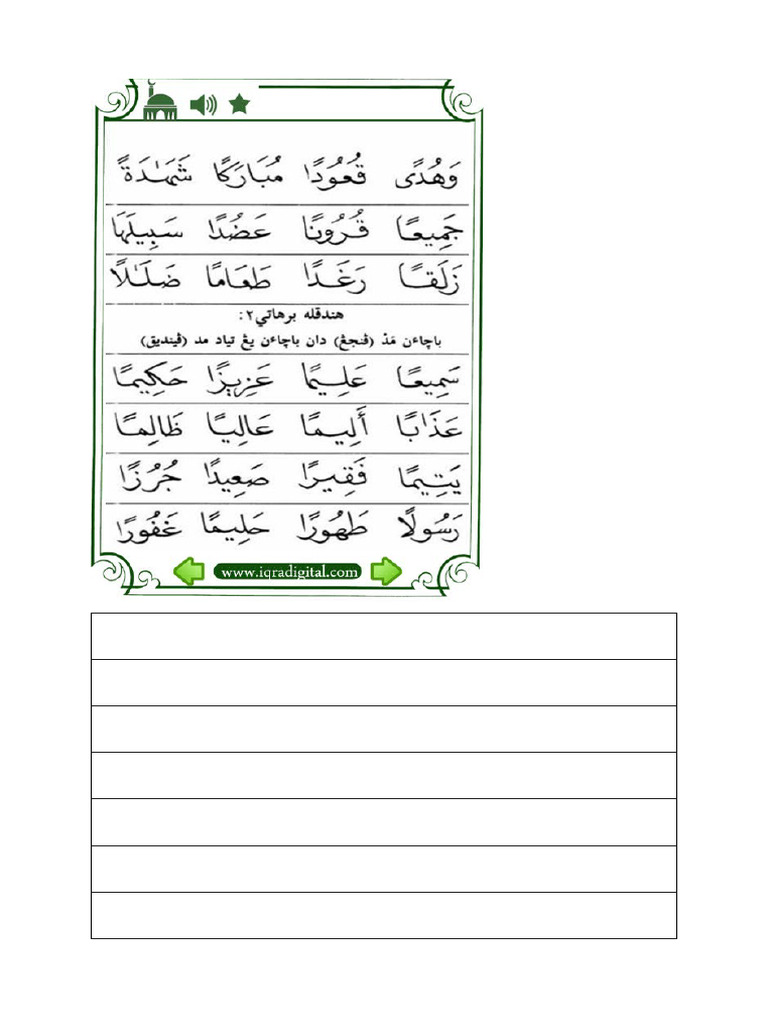 وَهُدًى قُعُودًا مُبَارَكًا شَهَٰدَةً
جَمِيعًا قُرُونًا عَضُدًا سَبِيلَهَا
زَلَقًا رَغَدًا طَعَامًا ضَلَٰلًا
هندقله برهاتي٢:
باچاءن مَدْ (ڤنجڠ) دان باچاءن يڠ تياد مد (ڤينديق)
سَمِيعًا عَلِيمًا عَزِيزًا حَكِيمًا
عَذَابًا أَلِيمًا عَالِيًا ظَالِمًا
يَتِيمًا فَقِيرًا صَعِيدًا جُرُزًا
رَسُولًا طَهُورًا حَلِيمًا غَفُورًا
www.iqradigital.com